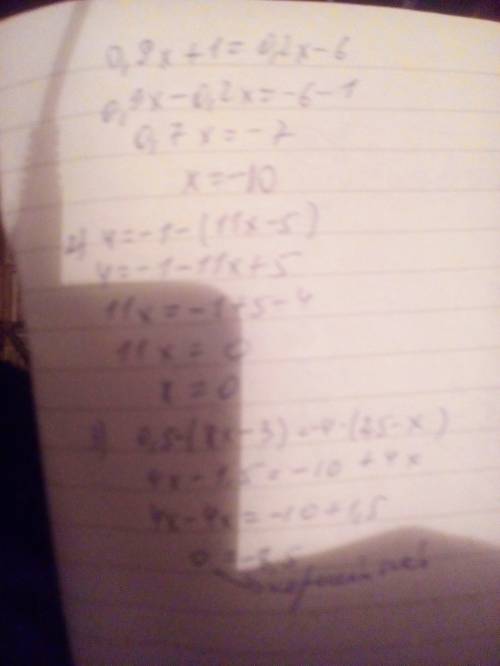 0,9x+1=0,2x-6
0,9x-0,2x=-6-1
0,7x=-7
x=-10
2) 4=-1-(11x-5)
4=-1-11x+5
11x=-1+5-4
11x=0
x=0
3) 0,5·(8x-3)=-4·(2,5-x)
4x-1,5=-10+4x
4x-4x=-10+1,5
0=-8,5